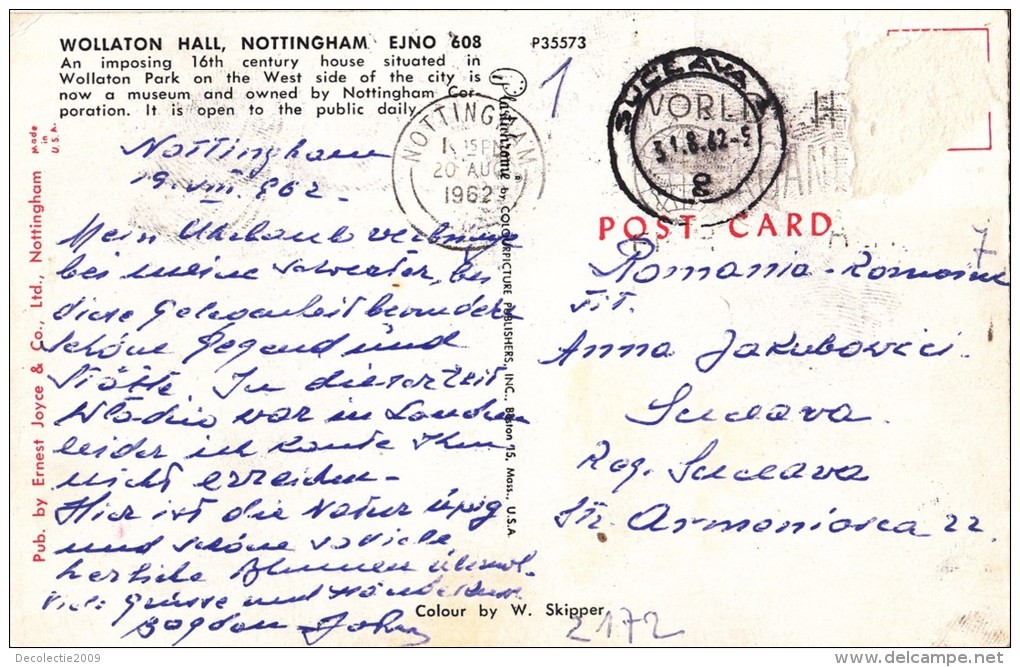 WOLLATON HALL, NOTTINGHAM EJNO 608
An imposing 16th century house situated in
Wollaton Park on the West side of the city is
now a museum and owned by Nottingham Cor-
poration. It is open to the public daily.
P35573
1
NOTTINGHAM
15 PM
20 AUG
1962
SUCEAVA 1
31.8.62-5
8
Made in U.S.A.
Pub. by Ernest Joyce & Co., Ltd., Nottingham
Plastichrome by COLOURPICTURE PUBLISHERS, INC., Boston 15, Mass., U.S.A.
POST CARD
Nottingham
19. VIII 962.
Mein Uhrlaub verbringe
bei meine schwester, bei
diese Gelegenheit besonders
schöne Gegend und
Städte. In dieser Zeit
Wladio war in London
leider ich konte Ihm
nicht erreichen-
Hier ist die Natur üpig
und schöne so viele
herliche Blumen überal.
Viele Grüsse und Händeküsse
Bogdan John
7
Romania-
Anna Jakubovici.
Suceava.
Reg. Suceava
Str. Armeniasca 22.
Colour by W. Skipper
2172
Decolectie2009
delcampe.net